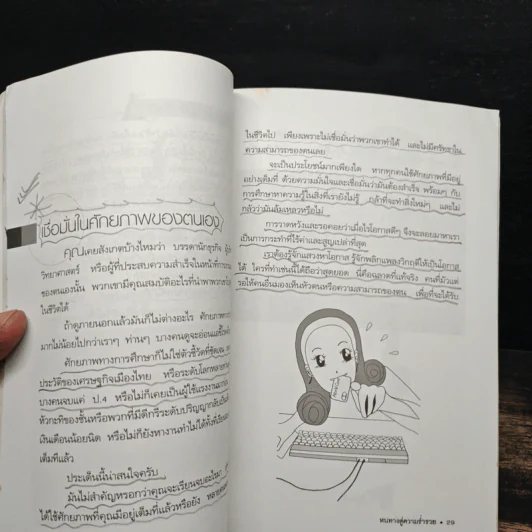 เชื่อมั่นในศักยภาพของตนเอง
คุณเคยสังเกตบ้างไหมว่า บรรดานักธุรกิจ
วิทยาศาสตร์ หรือผู้ที่ประสบความสำเร็จในหน้าที่การงาน
ของตนเองนั้น พวกเขามีคุณสมบัติอะไรที่นำพา
ในชีวิตได้
ถ้าดูภายนอกแล้วมันก็ไม่ต่างอะไร ศักยภาพ
มากไม่น้อยไปกว่าเราๆ ท่านๆ บางคนดูจะอ่อนแอ
ศักยภาพทางการศึกษาก็ไม่ใช่ตัวชี้วัดที่
ประวัติของเศรษฐกิจเมืองไทย หรือระดับโลก
บางคนจบแค่ ป.4 หรือไม่ก็เคยเป็นผู้ใช้แรงงาน
หัวกะทิของชั้นหรือพวกที่มีดีกรีระดับปริญญากลับเป็น
เงินเดือนน้อยนิด หรือไม่ก็ยังหางานทำไม่ได้ทั้งที่
เต็มทีแล้ว
ประเด็นนี้น่าสนใจครับ
มันไม่สำคัญหรอกว่าคุณจะเรียนจบอะไรมา
ได้ใช้ศักยภาพที่คุณมีอยู่เต็มที่แล้วหรือยัง
ในชีวิตไป เพียงเพราะไม่เชื่อมั่นว่าพวกเขาทำได้ และไม่มีศรัทธาใน
ความสามารถของตนเลย
จะเป็นประโยชน์มากเพียงใด หากทุกคนใช้ศักยภาพที่มีอยู่
อย่างเต็มที่ ด้วยความมั่นใจและเชื่อมั่นว่ามันต้องสำเร็จ พร้อมๆ กับ
การศึกษาหาความรู้ในสิ่งที่เรายังไม่รู้ กล้าที่จะทำสิ่งใหม่ๆ และไม่
กลัวว่ามันล้มเหลวหรือไม่
การวาดหวังและรอคอยว่าเมื่อไรโอกาสดีๆ จึงจะลอยมาหาเรา
เป็นการกระทำที่ไร้ค่าและสูญเปล่าที่สุด
เราต้องรู้จักแสวงหาโอกาส รู้จักพลิกแพลงวิกฤติให้เป็นโอกาส
ได้ ใครที่ทำเช่นนี้ได้ถือว่าสุดยอด นี่คือฉลาดที่แท้จริง คนที่มัวแต่
รอให้คนอื่นมองเห็นหัวตนหรือความสามารถของตน เพื่อที่จะได้รับ
หนทางสู่ความร่ำรวย • 29